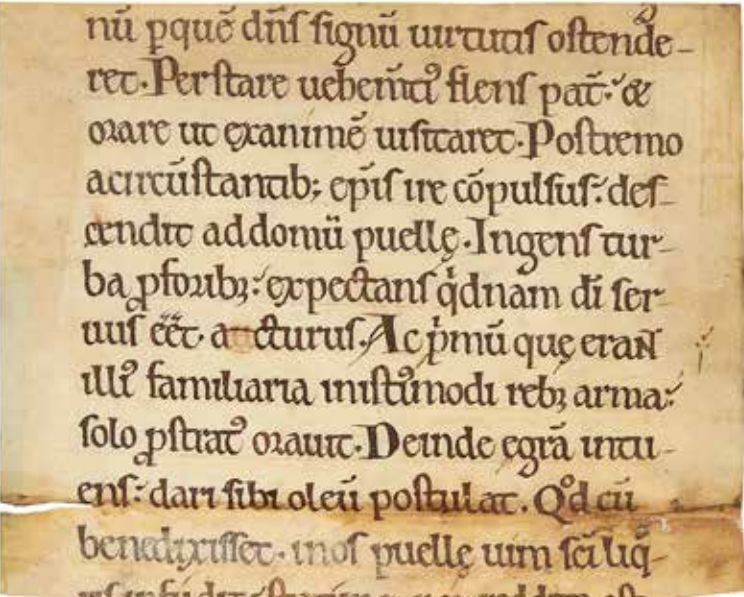 nū ꝑquē dn̄s signū uirtutis ostende-
ret. Perstare uehem̄t᷒ flens pat̄ &
orare ut exanimē uisitaret. Postremo
acircūstantib; ep̄is ire cōpulsus: des-
cendit addomū puellę. Ingens tur-
ba ꝓforib;: expectans qͥdnam dī ser-
uus eēt acturus. Ac pͥmū quę eraɴt
illi᷒ familiaria inisti᷒modi reb; arma:
solo ꝓstrat᷒ orauit. Deinde egrā intu-
ens: dari sibi oleū postulat. Qd̄ cū
benedixisset. inos puellę uim sc̄i liq̄-